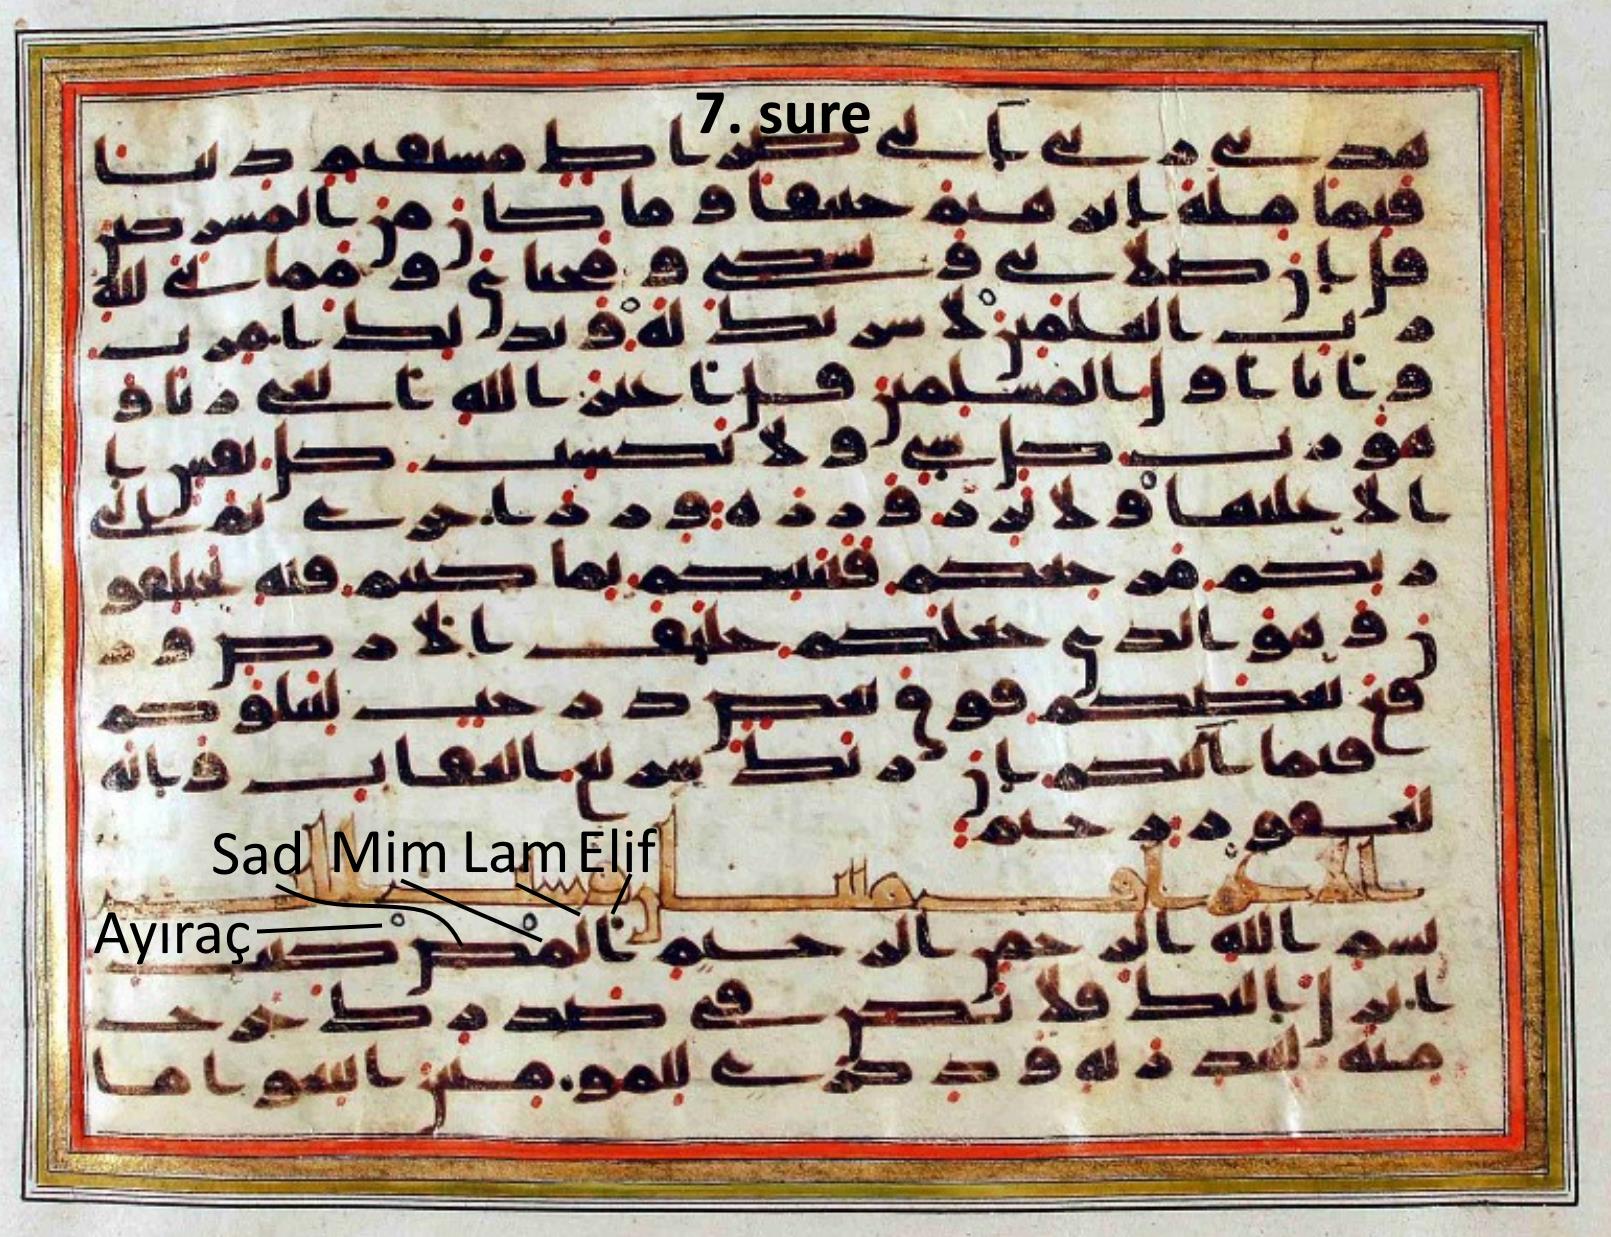 7. sure
هدىنى ربى الى صراط مستقيم دينا
قيما ملة ابرهيم حنيفا و ما كان من المشركين
قل ان صلاتى و نسكى و محياى و مماتى لله
رب العلمين لا شريك له و بذلك امرت
و انا اول المسلمين قل اغير الله ابغى ربا و
هو رب كل شى و لا تكسب كل نفس ا
لا عليها و لا تزر وازرة وزر اخرى ثم الى
ربكم مرجعكم فينبئكم بما كنتم فيه تختلفو
ن و هو الذى جعلكم خليف الارض و ر
فع بعضكم فوق بعض درجت ليبلوكم
فيما اتيكم ان ربك سريع العقاب و انه
لغفور رحيم
Sad Mim Lam Elif
Ayıraç
بسم الله الرحمن الرحيم المص كتب
انزل اليك فلا يكن فى صدرك حرج
منه لتنذر به و ذكرى للمومنين اتبعوا ما